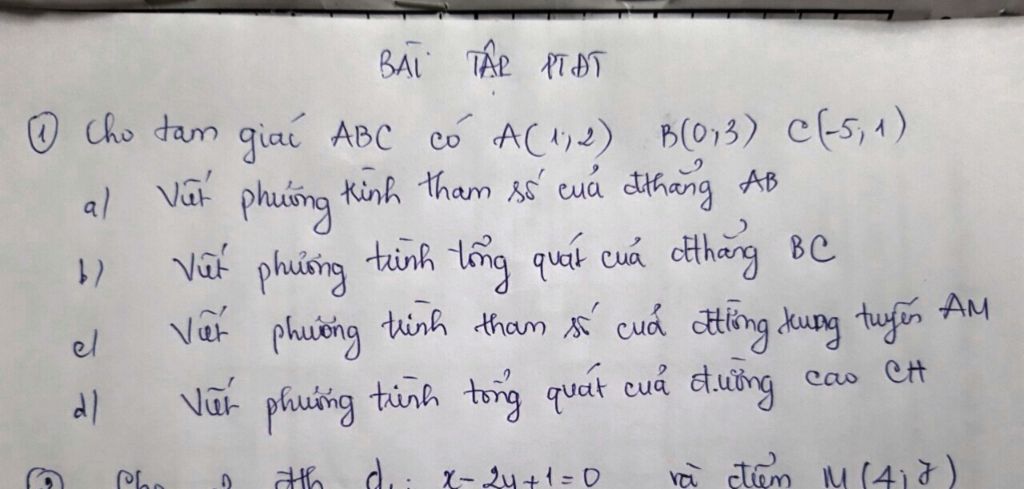 BÀI TẬP PTĐT
① Cho tam giác ABC có A(1;2) B(0;3) C(-5;1)
a) Viết phương trình tham số của đthẳng AB
b) Viết phương trình tổng quát của đthẳng BC
c) Viết phương trình tham số của đường trung tuyến AM
d) Viết phương trình tổng quát của đường cao CH
② Cho đth d₁: x-2y+1=0 và điểm M(4;7)